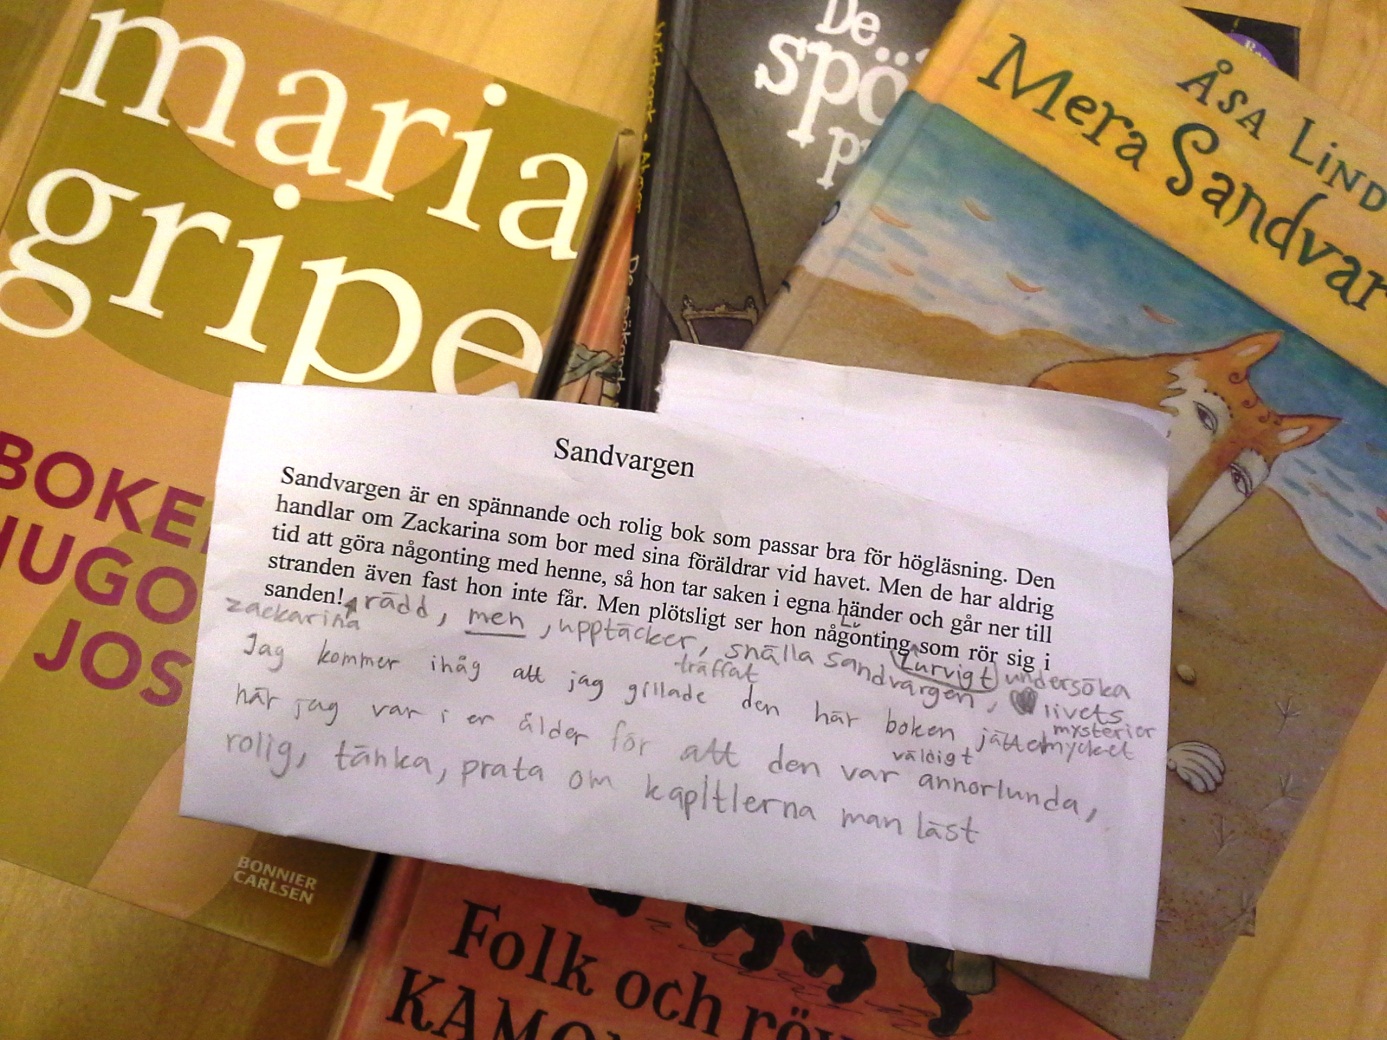 maria
gripe
BOKE
HUGO
JOS
BONNIER
CARLSEN
De
spö
ÅSA LIND
Mera Sandvar
Sandvargen
Sandvargen är en spännande och rolig bok som passar bra för högläsning. Den
handlar om Zackarina som bor med sina föräldrar vid havet. Men de har aldrig
tid att göra någonting med henne, så hon tar saken i egna händer och går ner till
stranden även fast hon inte får. Men plötsligt ser hon någonting som rör sig i
sanden!
rädd, men, upptäcker, snälla sandvargen,
Lurvigt
undersöka
livets
mysterier
zackarina
träffat
Jag kommer ihåg att jag gillade den här boken jättemycket
när jag var i er ålder för att den var annorlunda,
väldigt
rolig, tänka, prata om kapitlerna man läst
Folk och röv
KAMO